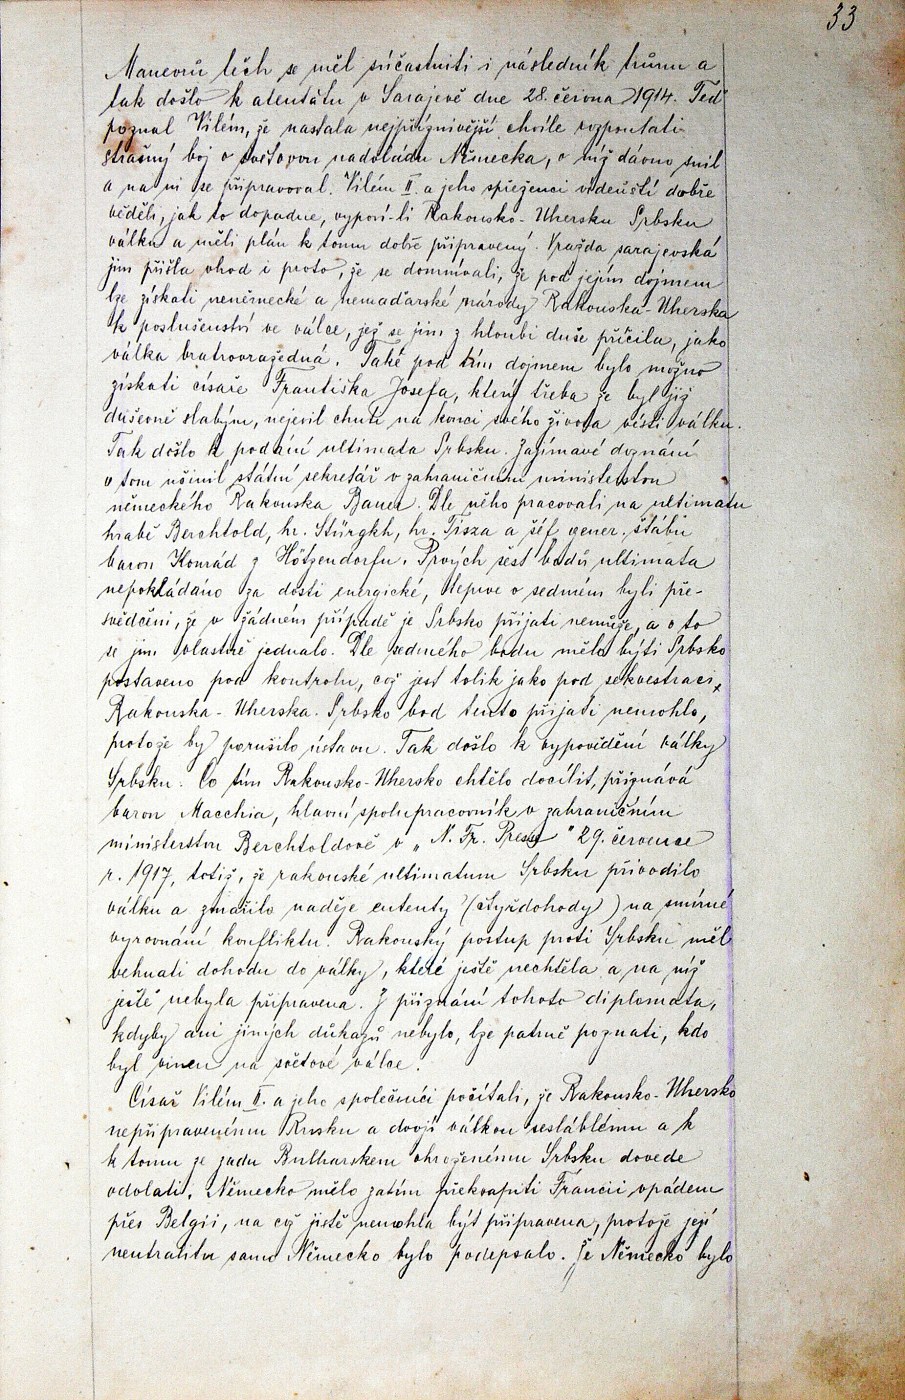 33
Manevrů těch se měl súčastniti i následník trůnu a
tak došlo k atentátu v Sarajevě dne 28. června 1914. Teď
poznal Vilém, že nastala nejpříznivější chvíle rozpoutati
strašný boj o světovou nadvládu Německa, o níž dávno snil
a na ni se připravoval. Vilém II. a jeho spřeženci vídeňští dobře
věděli, jak to dopadne, vypoví-li Rakousko-Uhersku Srbsku
válku a měli plán k tomu dobře připravený. Vražda sarajevská
jim přišla vhod i proto, že se domnívali, že pod jejím dojmem
lze získati neněmecké a nemaďarské národy Rakouska-Uherska
k poslušenství ve válce, jež se jim z hloubi duše příčila, jako
válka bratrovražedná. Také pod tím dojmem bylo možno
získati císaře Františka Josefa, který třeba že byl již
duševně slabým, nejevil chuti na konci svého života vésti válku.
Tak došlo k podání ultimata Srbsku. Zajímavé doznání
o tom učinil státní sekretář v zahraničním ministerstvu
německého Rakouska Bauer. Dle něho pracovali na ultimatu
hrabě Berchtold, hr. Stürgkh, hr. Tisza a šéf gener. štábu
baron Konrád z Hötzendorfu. Prvých šest bodů ultimata
nepokládáno za dosti energické, teprve o sedmém byli pře-
svědčeni, že v žádném případě je Srbsko přijati nemůže, a o to
se jim vlastně jednalo. Dle sedmého bodu mělo býti Srbsko
postaveno pod kontrolu, což jest tolik jako pod sekvestraci
Rakouska-Uherska. Srbsko bod tento přijati nemohlo,
protože by porušilo ústavu. Tak došlo k vypovědění války
Srbsku. Co tím Rakousko-Uhersko chtělo docílit, přiznává
baron Macchia, hlavní spolupracovník v zahraničním
ministerstvu Berchtoldově v „N. Fr. Presse" 29. července
r. 1917, totiž, že rakouské ultimatum Srbsku přivodilo
válku a zmařilo naděje ententy (čtyřdohody) na smírné
vyrovnání konfliktu. Rakouský postup proti Srbsku měl
vehnati dohodu do války, které ještě nechtěla a na níž
ještě nebyla připravena. Z přiznání tohoto diplomata,
kdyby ani jiných důkazů nebylo, lze patrně poznati, kdo
byl vinen na světové válce.
Císař Vilém II. a jeho společníci počítali, že Rakousko-Uhersko
nepřipravenému Rusku a dvojí válkou sesláblému a k
k tomu ze zadu Bulharskem ohroženému Srbsku dovede
odolati. Německo mělo zatím překvapiti Francii vpádem
přes Belgii, na což jistě nemohla být připravena, protože její
neutralitu samo Německo bylo podepsalo. Že Německo bylo